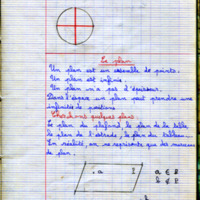 Le plan
Un plan est un ensemble de points.
Un plan est infini.
Un plan n'a pas d'épaisseur.
Dans l'espace un plan peut prendre une
infinité de positions
Cherchons quelques plans :
Le plan du plafond, le plan de la table,
le plan de l'estrade, le plan du tableau...
En réalité, on ne représente que des morceaux
de plan.
.a
a ∈ P
b ∉ P